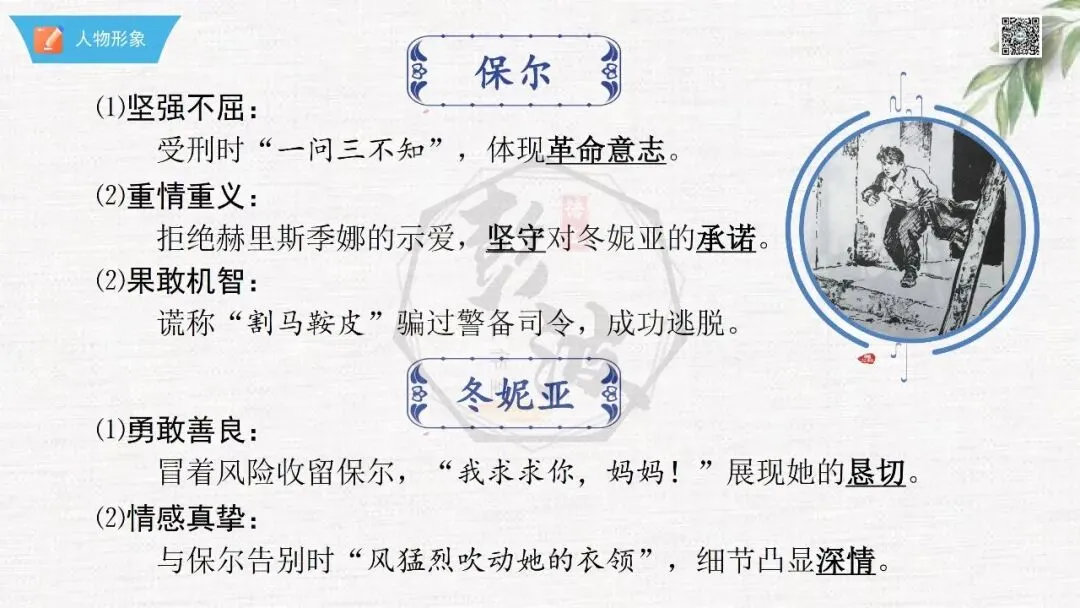 人物形象
保尔
⑴坚强不屈：
受刑时“一问三不知”，体现革命意志。
⑵重情重义：
拒绝赫里斯季娜的示爱，坚守对冬妮亚的承诺。
⑵果敢机智：
谎称“割马鞍皮”骗过警备司令，成功逃脱。
冬妮亚
⑴勇敢善良：
冒着风险收留保尔，“我求求你，妈妈！”展现她的恳切。
⑵情感真挚：
与保尔告别时“风猛烈吹动她的衣领”，细节凸显深情。